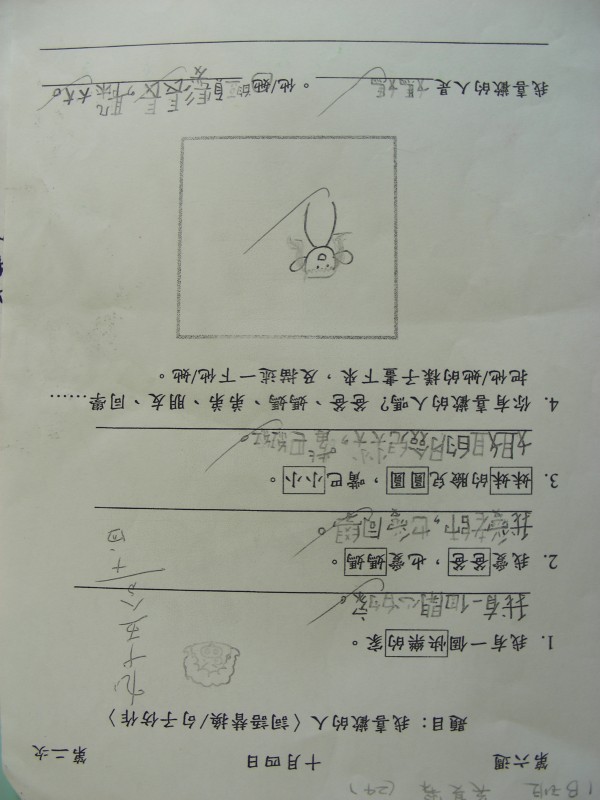 1B班 (29)
第六週 十月四日 第二次
題目：我喜歡的人〈詞語替換/句子仿作〉
九十五分
十.四
1. 我有一個快樂的家。
我有一個開心的家。
2. 我愛爸爸，也愛媽媽。
我愛老師，也愛同學。
3. 妹妹的臉兒圓圓，嘴巴小小。
姐姐的大大，嘴巴
4. 你有喜歡的人嗎？爸爸、媽媽、弟弟、朋友、同學……
把他/她的樣子畫下來，及描述一下他/她。
我喜歡的人是媽媽。他/她的長長，大大。